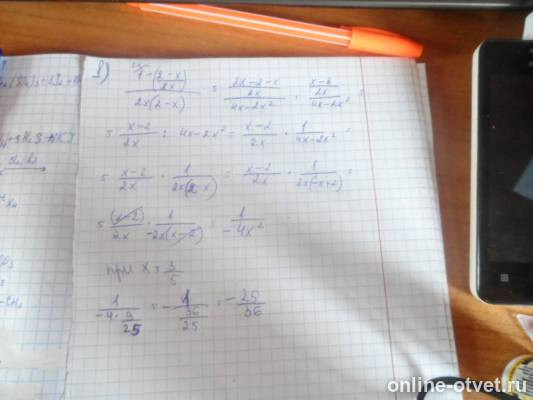 1) (2x/1 - (2-x)/2x) / 2x(2-x) = (2x-2-x)/2x / 4x-2x² = (x-2)/2x / 4x-2x² =
= (x-2)/2x : 4x-2x² = (x-2)/2x · 1/(4x-2x²) =
= (x-2)/2x · 1/2x(2-x) = (x-2)/2x · 1/2x(-x+2) =
= (x-2)/2x · 1/-2x(x-2) = 1/-4x²
при x = 3/5
1/(-4 · 9/25) = - 1/(36/25) = - 25/36
online-otvet.ru